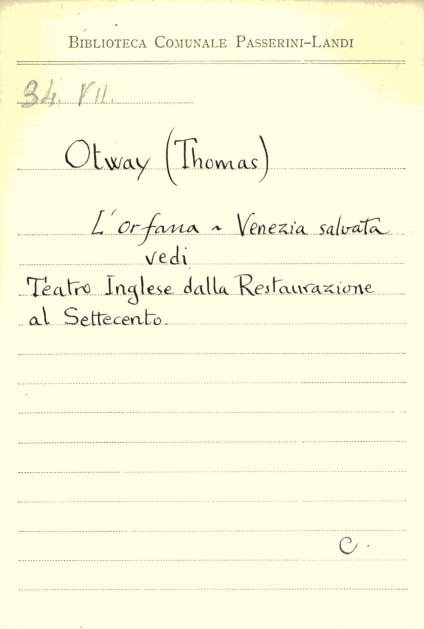 BIBLIOTECA COMUNALE PASSERINI-LANDI
34. VII.
Otway (Thomas)
L'orfana ~ Venezia salvata
vedi
Teatro Inglese dalla Restaurazione
al Settecento.
C.